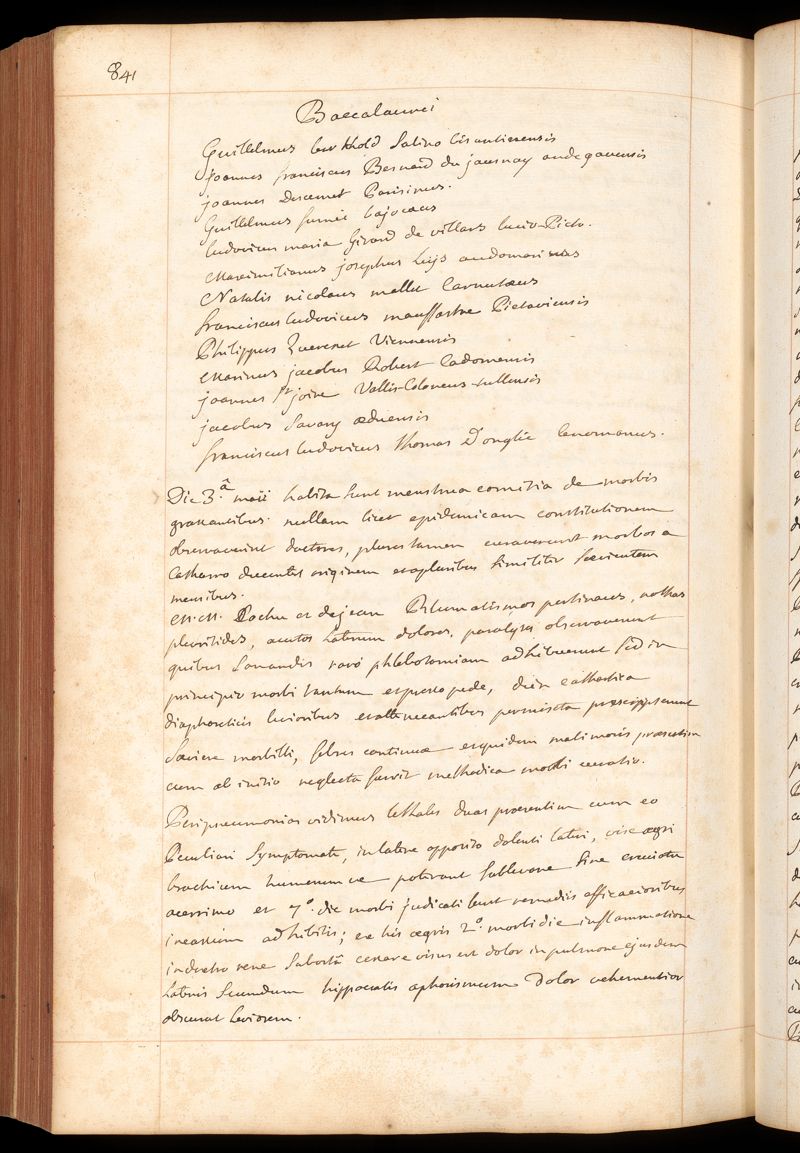 841
Baccalaurei
Guillelmus Salino
Joannes franciscus Bernard du jaunay andegavensis
joannes Descemet Parisinus.
Guillelmus fumée bajocaeus
Ludovicus maria Girard de villars lucio-Picto.
Maximilianus josephus Luys audomarinus
Natalis nicolaus mallet Carnutaeus
franciscus Ludovicus maussastre Pictaviensis
Philippus Quevenet Viennensis
Marinus jacobus Robert Cadomensis
joannes Vallis-Coloreus-tullensis
jacobus Savary aeduensis
franciscus Ludovicus Thomas Donglée Cenomanus.
Die 3.â maii habita sunt menstrua comitia de morbis
grassantibus. nullam licet epidemicam constitutionem
observaverint doctores, plures tamen curaverunt morbos a
Catharro ducentes originem et a pluribus similiter saevientem
mensibus.
M.M. Bachu et dejean Rhumatismos pertinaces, nothas
pleuritides, acutos laterum dolores, paralyses observaverunt
quibus Sanandis raro phlebotomiam adhibuerunt sed in
principio morbi tantum et presso pede, dein cathartica
diaphoreticis levioribus et attenuantibus permixta praescripserunt
Saviere morbilli, febres continuae et quidem mali moris praesertim
cum ab initio neglecta fuerit methodica morbi curatio.
Peripneumonias vidimus lethales duas praesertim cum eo
Peculiari Symptomate, in latere opposito dolenti lateri, vix aegri
brachium humerumve poterant sublevare sine cruciatu
acerrimo et 7.o die morbi judicati sunt remediis efficacioribus
incassum adhibitis; ex his aegris 2.o morbi die inflammatione
in dextro rene Subortâ cessare visus est dolor in pulmone ejusdem
Lateris Secundum hippocratis aphorismum Dolor vehementior
obscurat leviorem.